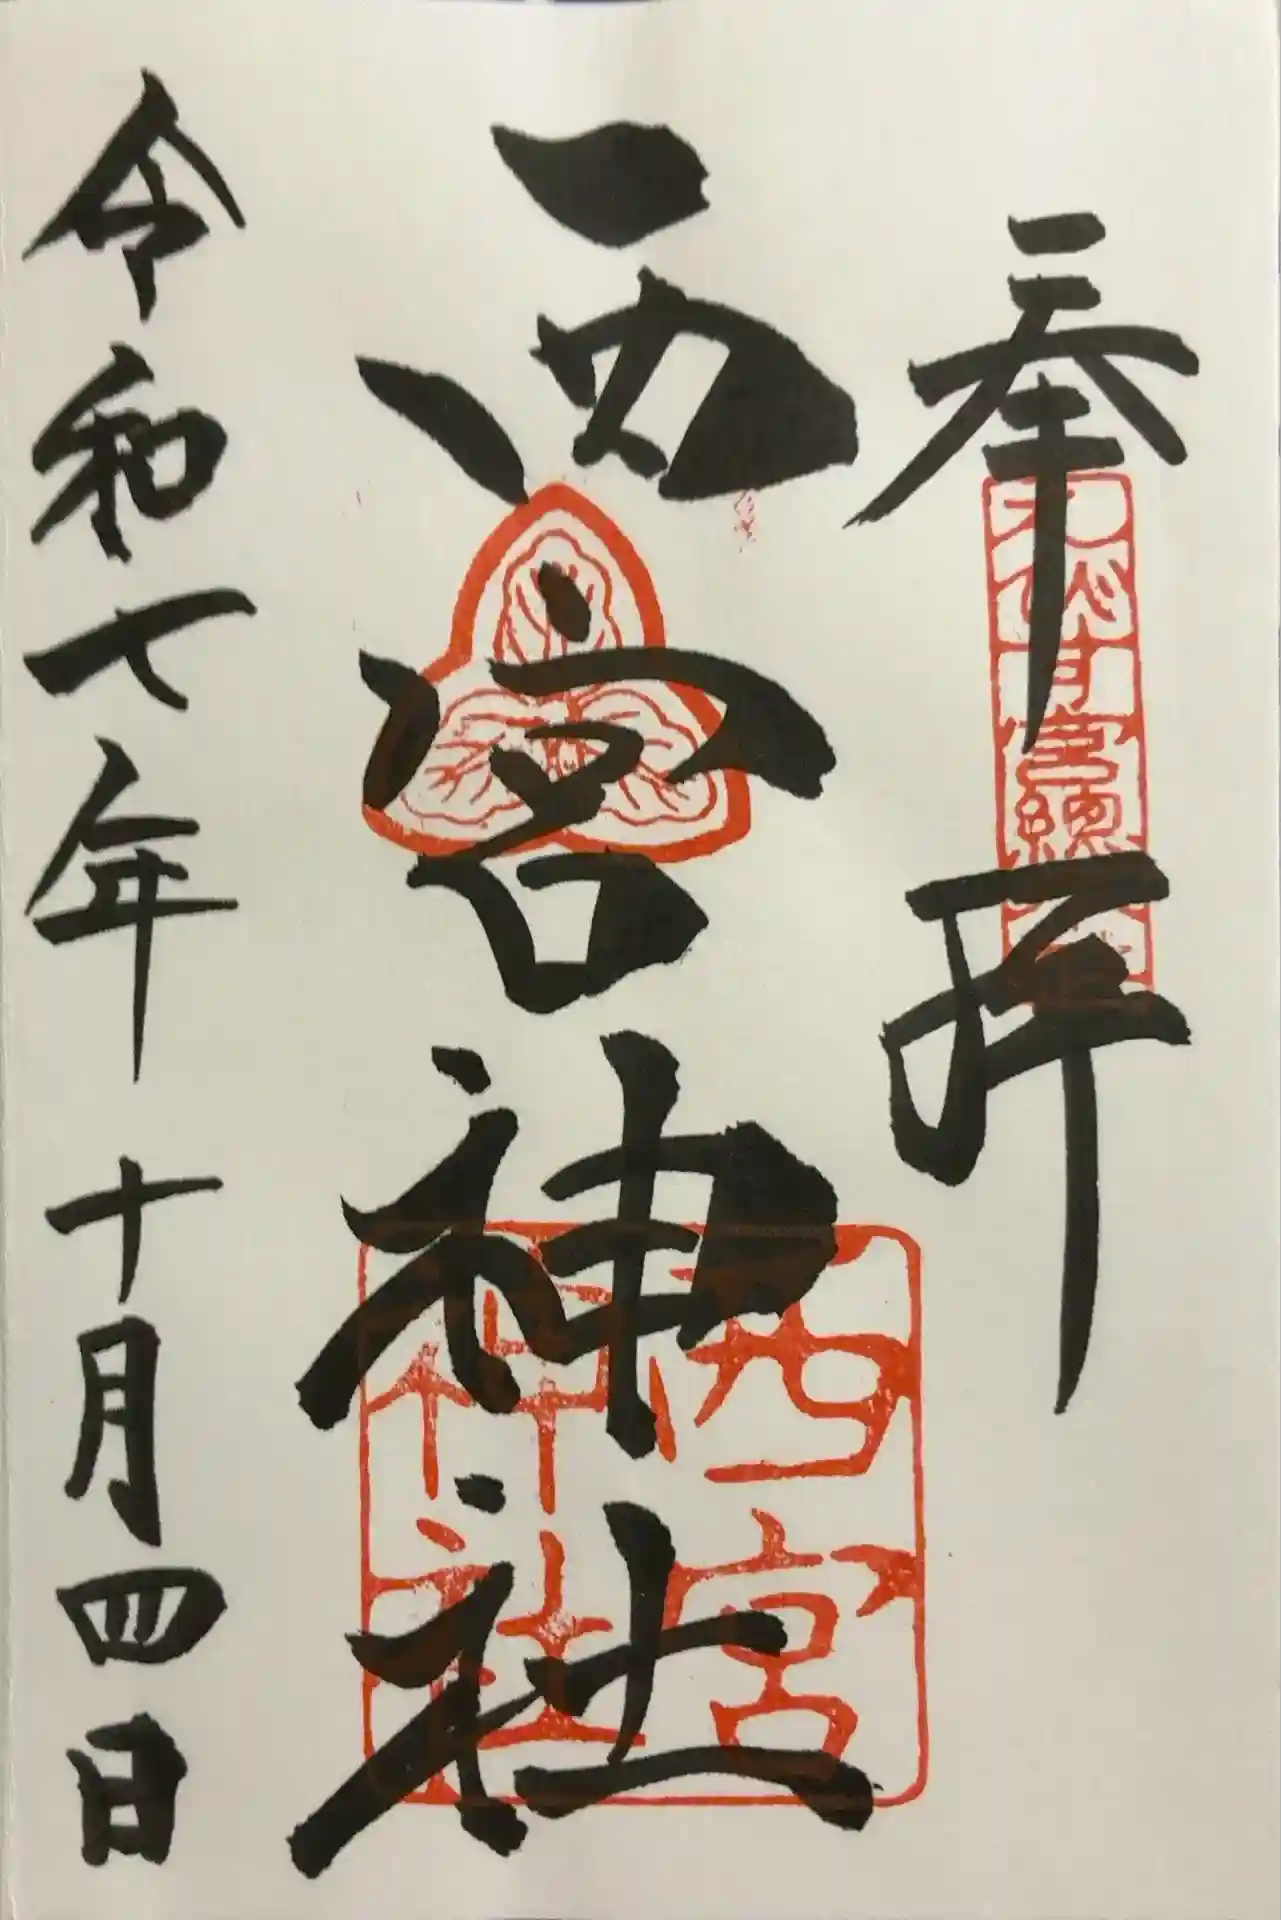 奉拝
西宮神社
西宮
神社
令和七年 十月四日